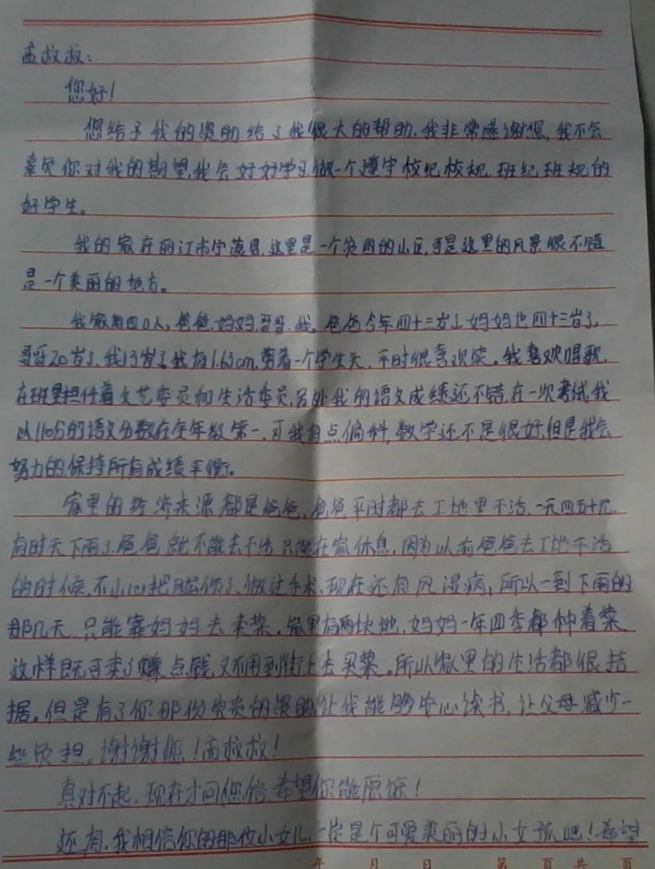 孟叔叔：
您好！
您给予我的资助给了我很大的帮助，我非常感谢您，我不会
辜负你对我的期望，我会好好学习做一个遵守校纪校规，班纪班规的
好学生。
我的家在丽江市宁蒗县，这里是一个贫困的山区，可是这里的风景很不错
是一个美丽的地方。
我家有四口人，爸爸、妈妈、哥哥、我。爸爸今年四十三岁了，妈妈也四十三岁了，
哥哥20岁了，我13岁了，我有1.63cm，剪着一个学生头，平时很喜欢笑。我喜欢唱歌，
在班里担任着文艺委员和生活委员，另外我的语文成绩还不错，在一次考试，我
以110分的语文分数在全年级第一，可我有点偏科，数学还不是很好，但是我会
努力的，保持所有成绩平衡。
家里的经济来源都是爸爸，爸爸平时都去工地里干活，一天四五十元，
有时天下雨了，爸爸就不能去干活只能在家休息，因为以前爸爸去工地干活
的时候，不小心把腿伤了，做过手术，现在还有风湿病，所以一到下雨的
那几天，只能靠妈妈去卖菜，家里有两块地，妈妈一年四季都种着菜
这样既可卖了赚点钱，又不用到街上去买菜。所以家里的生活都很拮
据。但是有了你那份宝贵的资助，让我能够安心读书，让父母减少一
些负担。谢谢您！孟叔叔！
真对不起，现在才回您信，希望你能原谅！
还有，我相信你的那位小女儿，一定是个可爱美丽的小女孩吧！希望
年 月 日 第 页 共 页